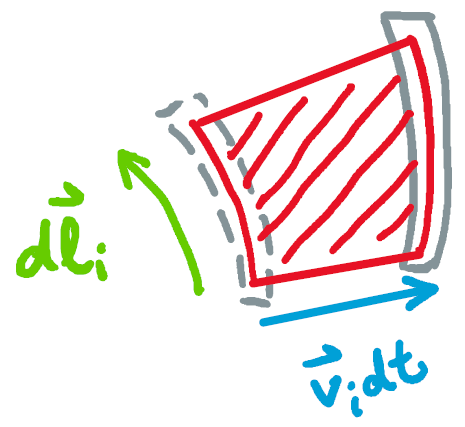 d\vec{l}_i
\vec{v}_i dt